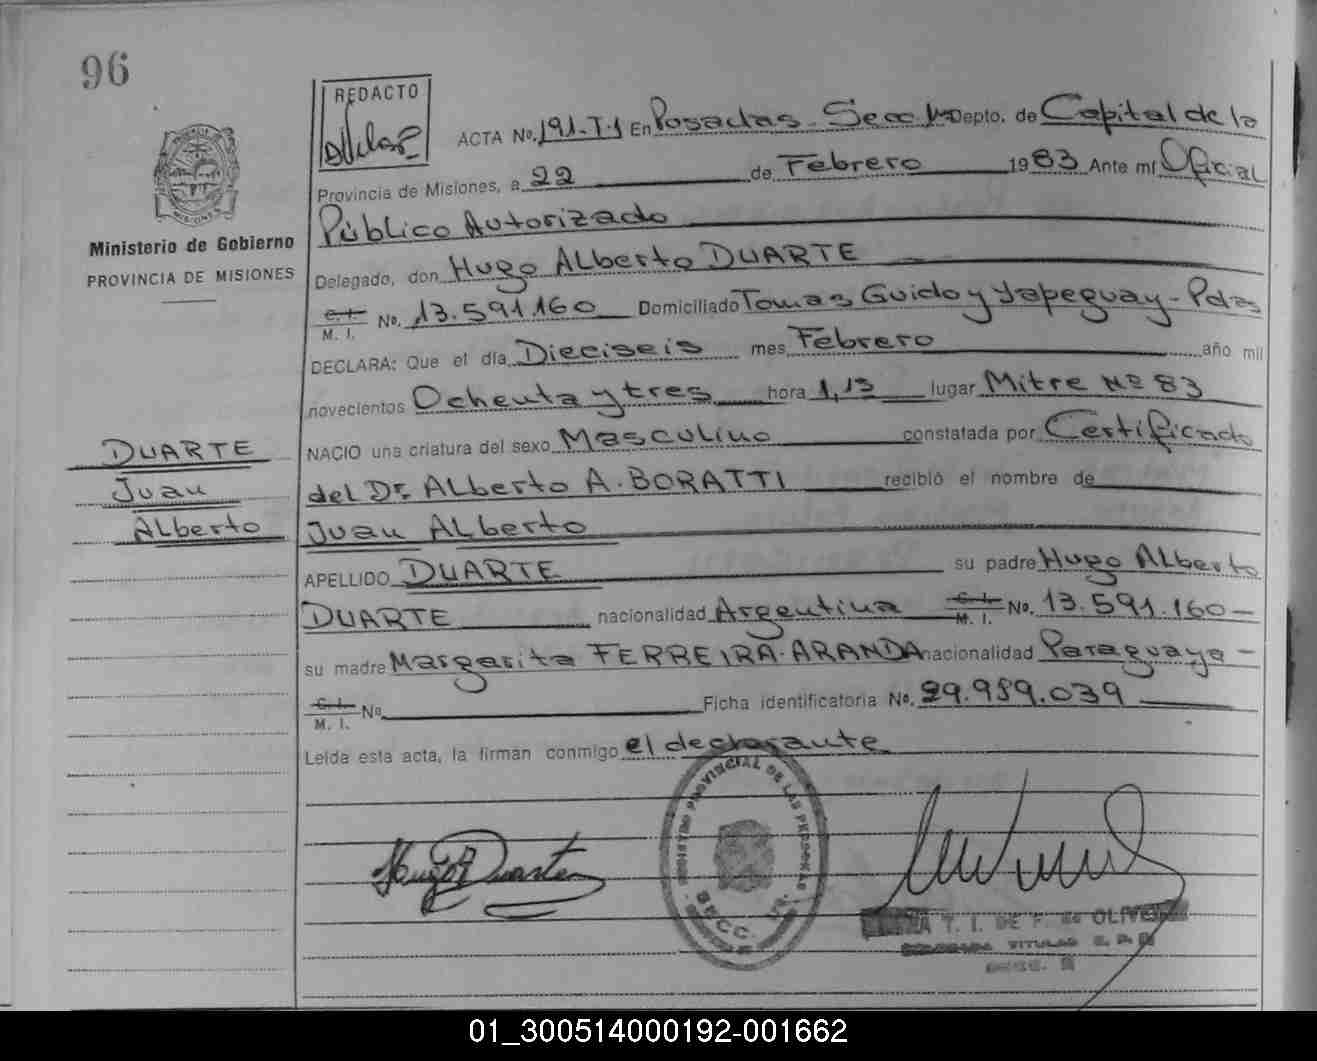 96
REDACTO
ACTA No. 191-T-1 En Posadas - Secc. Depto. de Capital de la
Provincia de Misiones, a 22 de Febrero 1983 Ante mí Oficial
Público Autorizado
Ministerio de Gobierno
PROVINCIA DE MISIONES
Delegado, don Hugo Alberto DUARTE
C. I.
M. I. No. 13.591.160 Domiciliado Tomas Guido y Yapeguay - Pdas
DECLARA: Que el día Dieciseis mes Febrero año mil
novecientos Ochenta y tres hora 1,15 lugar Mitre Nº 83
NACIO una criatura del sexo Masculino constatada por Certificado
del Dr. Alberto A. BORATTI recibió el nombre de
Juan Alberto
DUARTE
Juan
Alberto
APELLIDO DUARTE su padre Hugo Alberto
DUARTE nacionalidad Argentina C. I.
M. I. No. 13.591.160-
su madre Margarita FERREIRA-ARANDA nacionalidad Paraguaya -
C. I.
M. I. No Ficha identificatoria No. 29.989.039
Leída esta acta, la firman conmigo el declarante
Hugo A Duarte
REGISTRO PROVINCIAL DE LAS PERSONAS
SECC.
T. I. DE F. de OLIVEIRA
TITULAR
SECC.
MISIONES
01_300514000192-001662